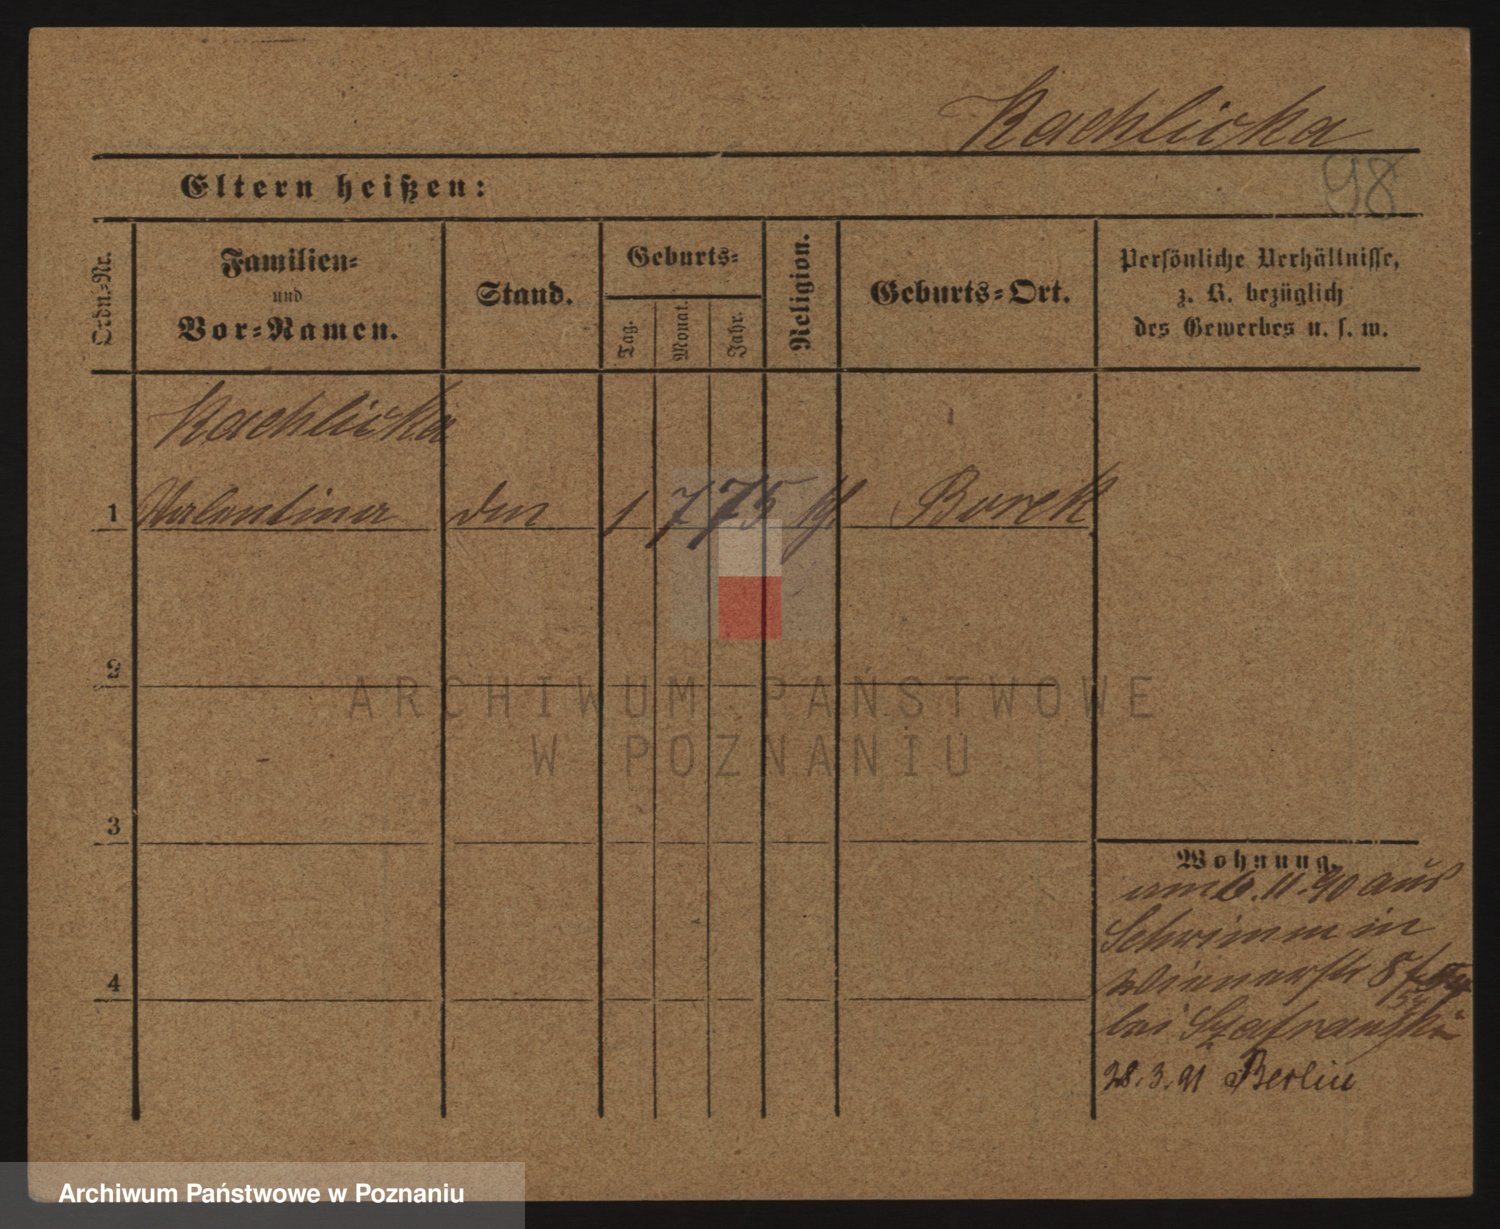 Kachlicka
98
Eltern heißen:
Ordn.-Nr.
Familien-
und
Vor-Namen.
Stand.
Geburts-
Tag.
Monat.
Jahr.
Religion.
Geburts-Ort.
Persönliche Verhältnisse,
z. B. bezüglich
des Gewerbes u. s. w.
Kachlicka
1 Valentina 1 7 75 Borek
2
ARCHIWUM PAŃSTWOWE
W POZNANIU
3
Wohnung.
am 6.11.90 aus
Schrimm in
Wienerstr 8
bei Szafranski
28.3.91 Berlin
4
Archiwum Państwowe w Poznaniu